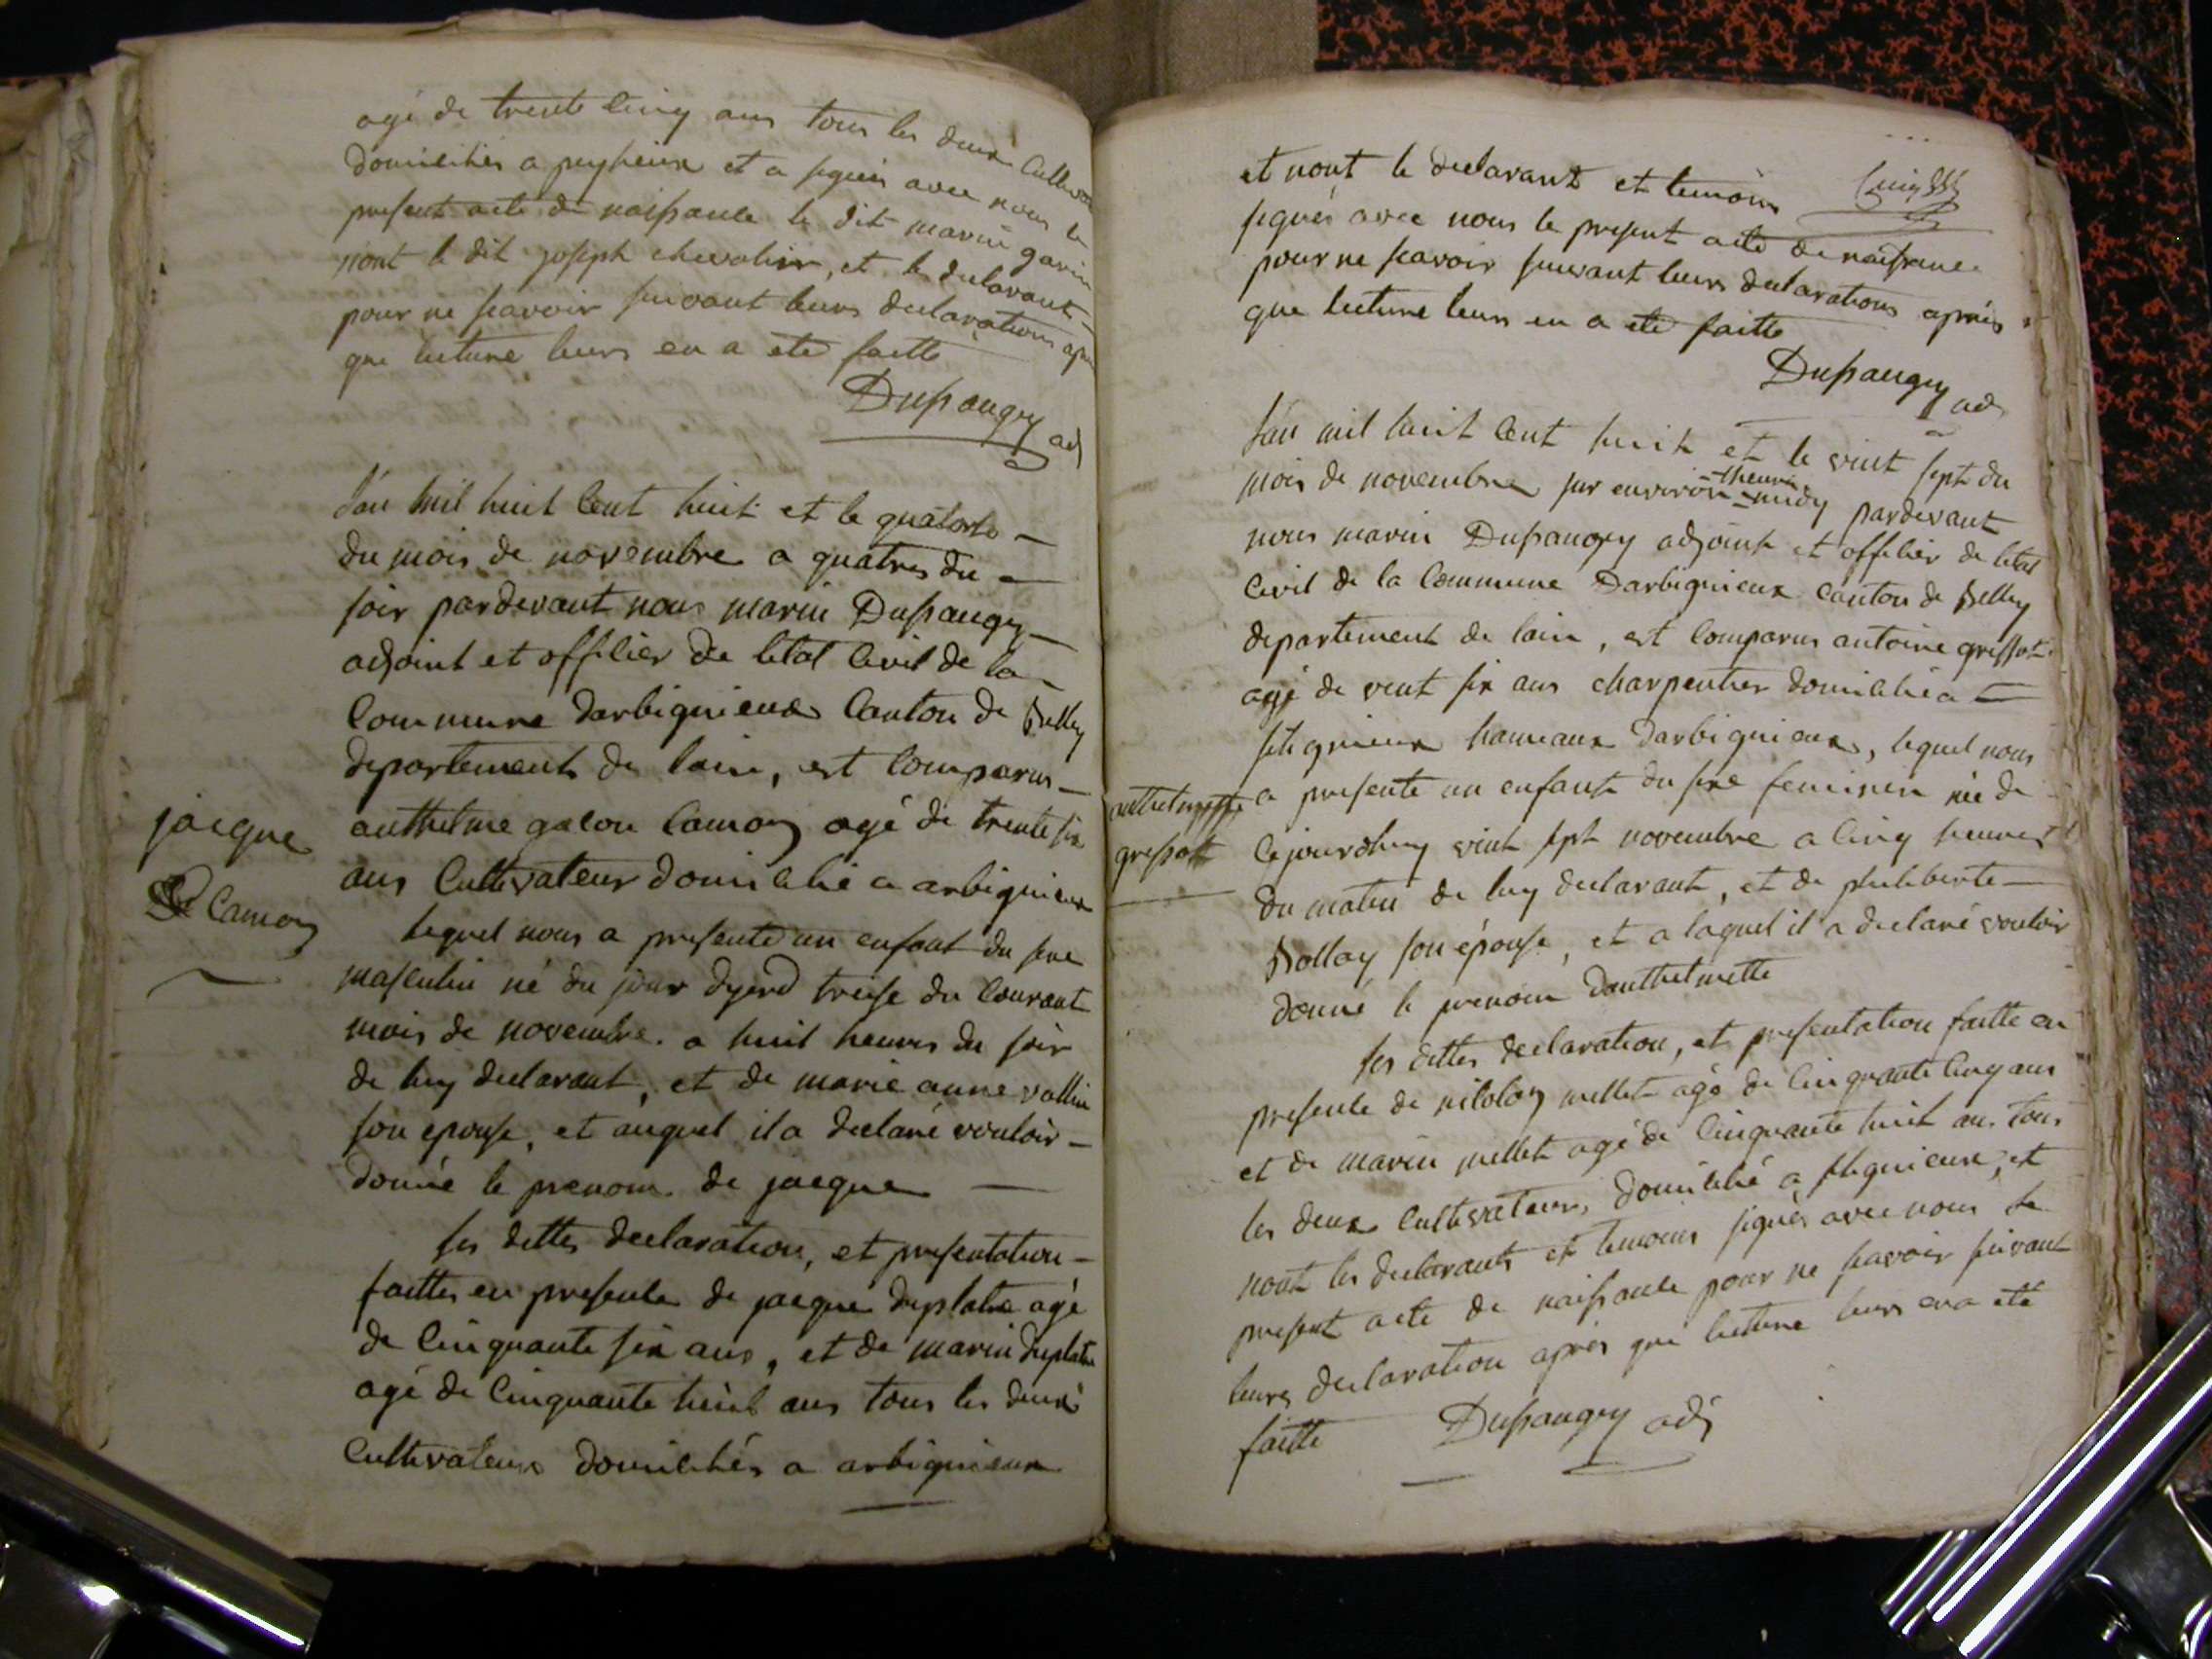 agé de trente cinq ans tous les deux Cultiva
domiciliés a peyzieux et a signés avec nous le
present acte de naissance le dit marin garin
nont le dit joseph chevalier, et le declarant
pour ne scavoir suivant leurs declarations apr
que lecture leurs en a eté faitte
Dupaugey adj
L'an mil huit Cent huit et le quatorse
du mois de novembre a quatres du
soir pardevant nous marin Dupaugey
adjoint et officier de letat Civil de la
Commune darbignieux Canton de Belley
departement de lain, est Comparus
anthelme galon Camoz agé de trente six
ans Cultivateur domicilié a arbignieux
lequel nous a presenté un enfant du sexe
masculin né du jour dyerd treise du Courant
mois de novembre a huit heures du soir
de luy declarant, et de marie anne vallin
son epouse, et auquel il a declaré vouloir
donné le prenom de jacque
jacque
Camoz
les dittes declaration, et presentation
faittes en presence de jacque duplatre agé
de Cinquante six ans, et de marin duplatre
agé de Cinquante huit ans tous les deux
Cultivateurs domiciliés a arbignieux
et nont le declarant et temoins
signés avec nous le present acte de naissance
pour ne scavoir suivant leurs declarations aprés
que lecture leurs en a eté faitte
Dupaugey adj
L'an mil huit Cent huit et le vint sept du
mois de novembre sur environ lheure midy pardevant
nous marin Dupaugey adjoint et officier de letat
Civil de la Commune Darbignieux Canton de Belley
departement de lain, est Comparus antoine gressot
agé de vent six ans charpentier domicilié a
slignieux hameaux darbignieux, lequel nous
a presenté un enfant du sexe feminin né de
Cejourdhuy vint sept novembre a Cinq heures
du matin de luy declarant, et de philiberte
Bollay son épouse, et a laquel il a declaré vouloir
donné le prenom danthelmette
anthelmette
gressot
les dittes declaration, et presentation faitte en
presence de nicolas mellet agé de Cinquante Cinq ans
et de marin mellet agé de Cinquante huit ans tous
les deux Cultivateurs, domicilié a slignieux, et
nont les declarants et temoins signés avec nous le
present acte de naissance pour ne scavoir suivant
leurs declaration aprés que lecture leurs en a eté
faitte Dupaugey adj